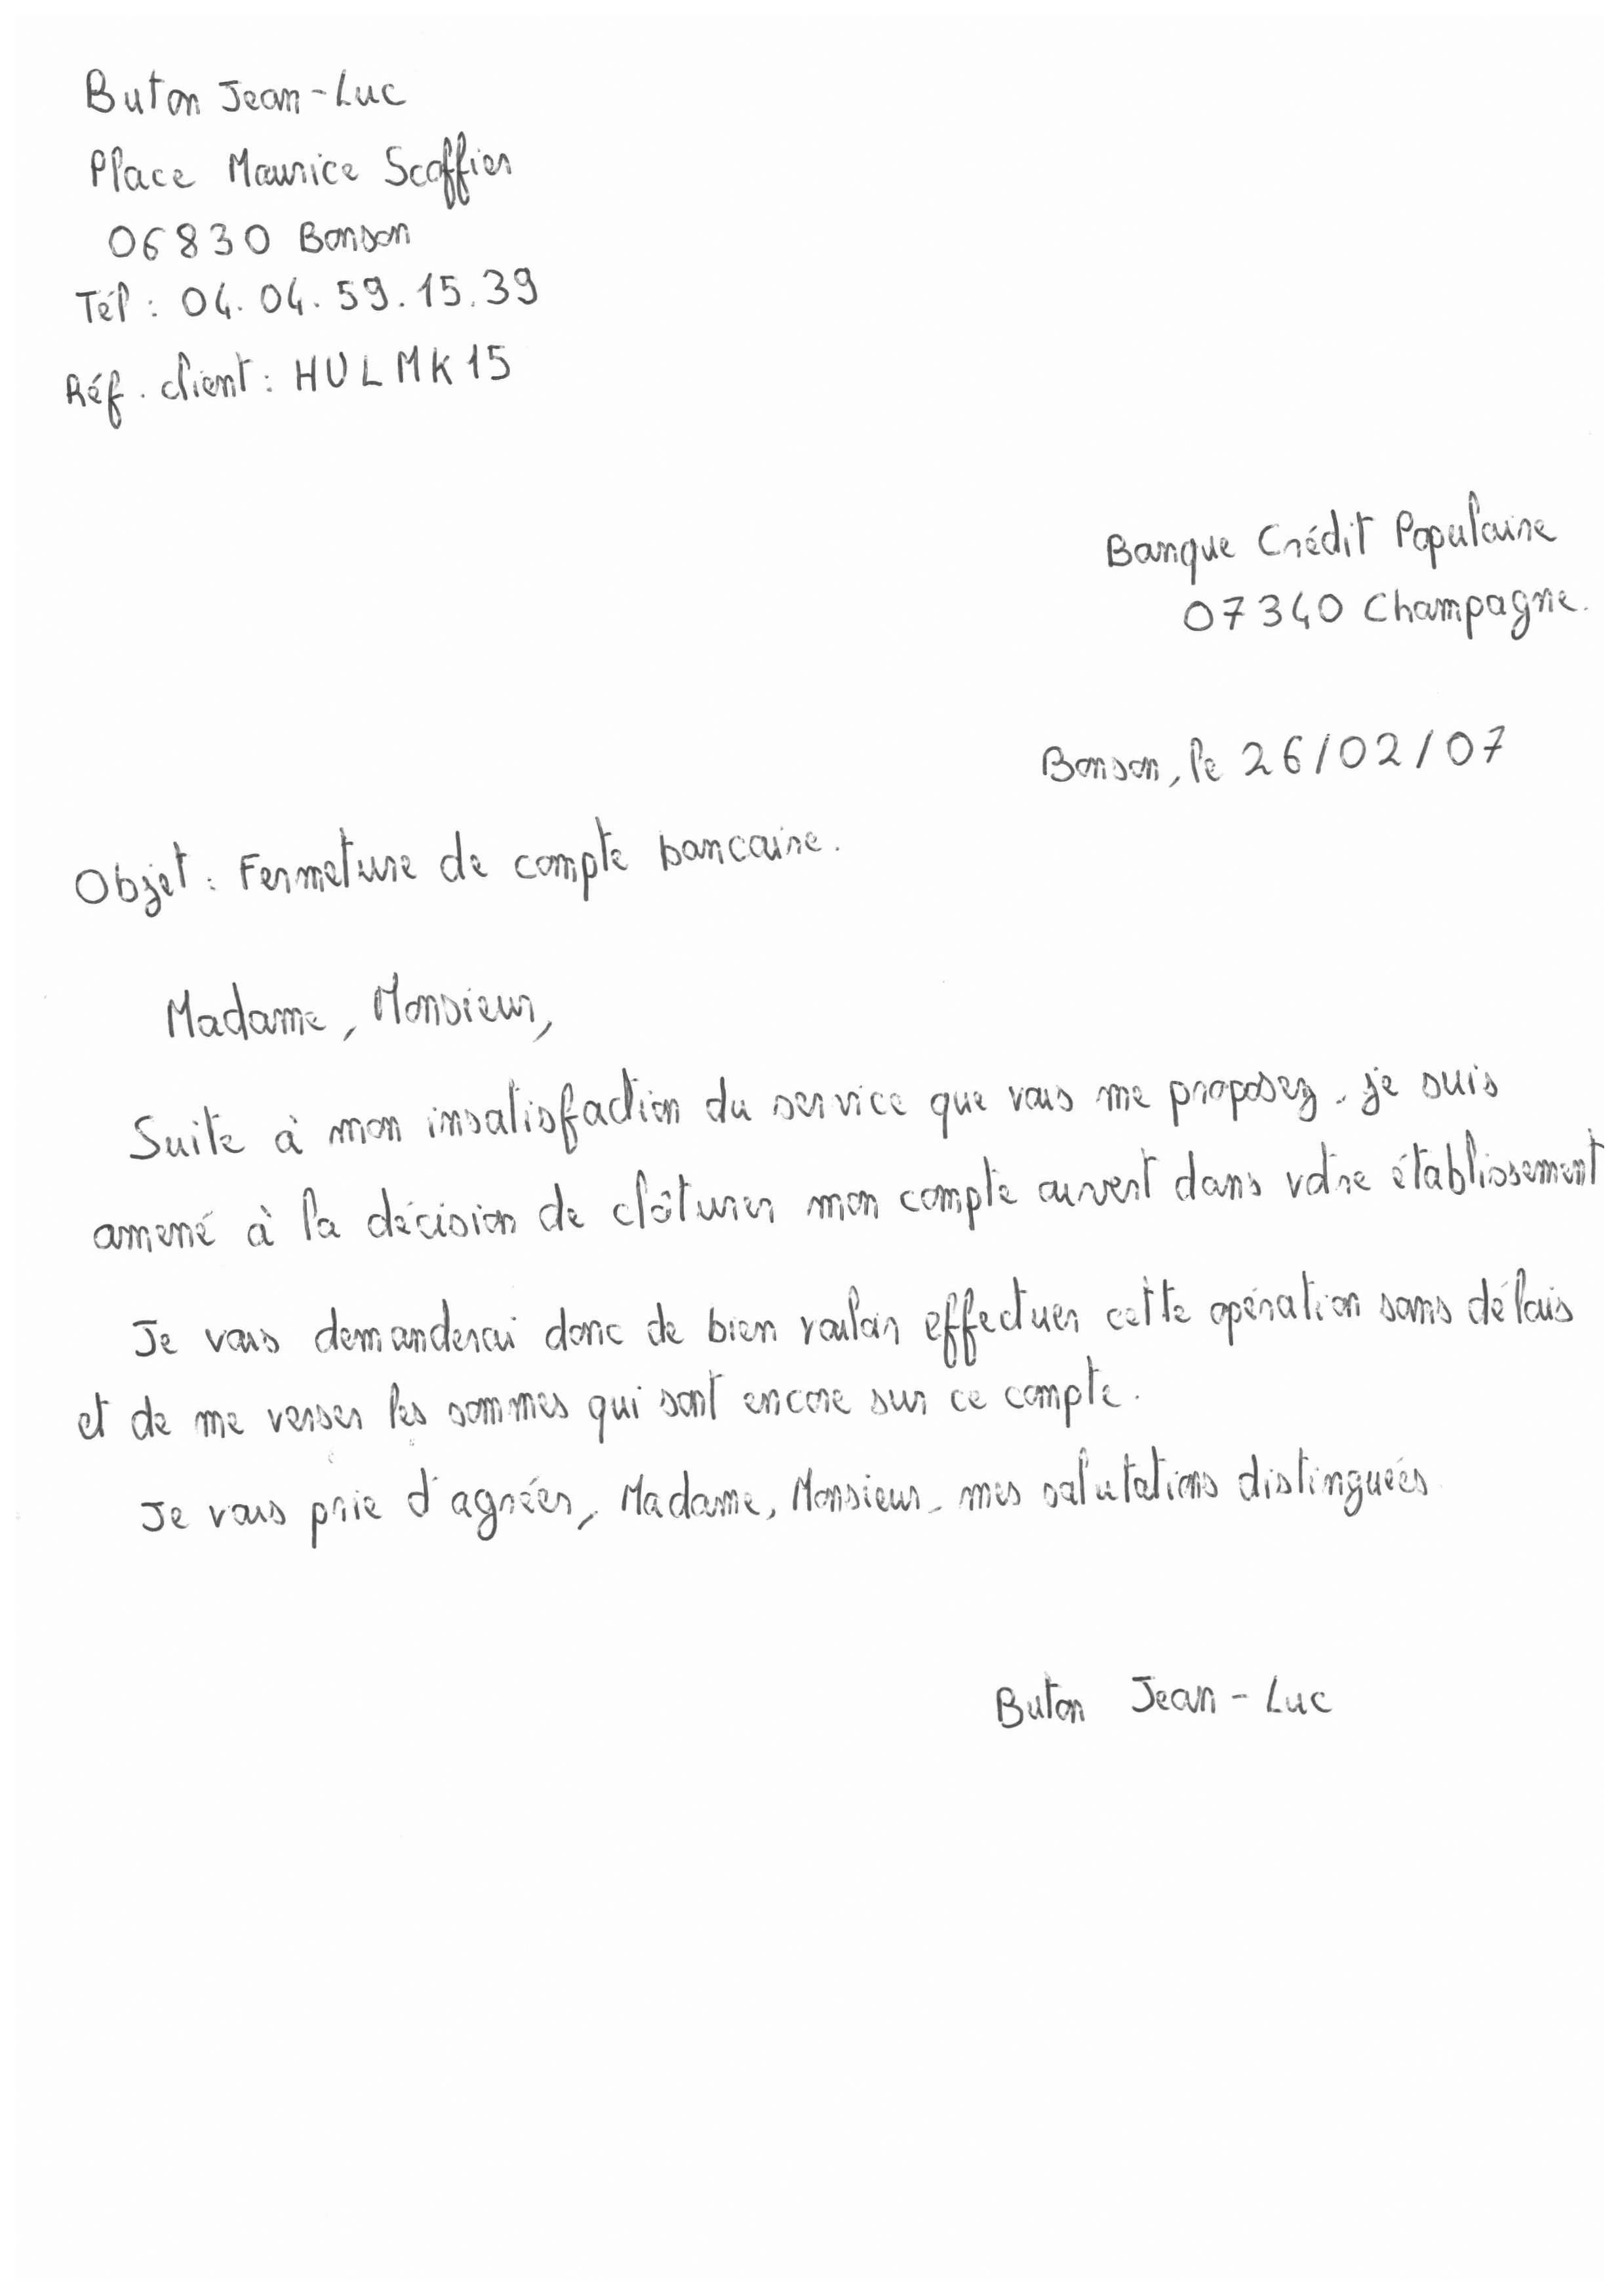 Buton Jean-Luc
Place Maurice Scoffier
06830 Bonson
Tél : 04.04.59.15.39
Réf. client : HULMK15
Banque Crédit Populaire
07340 Champagne.
Bonson, le 26/02/07
Objet : Fermeture de compte bancaire.
Madame, Monsieur,
Suite à mon insatisfaction du service que vous me proposez, je suis
amené à la décision de clôturer mon compte ouvert dans votre établissement
Je vous demanderai donc de bien vouloir effectuer cette opération sans délais
et de me verser les sommes qui sont encore sur ce compte.
Je vous prie d'agréer, Madame, Monsieur, mes salutations distinguées
Buton Jean-Luc